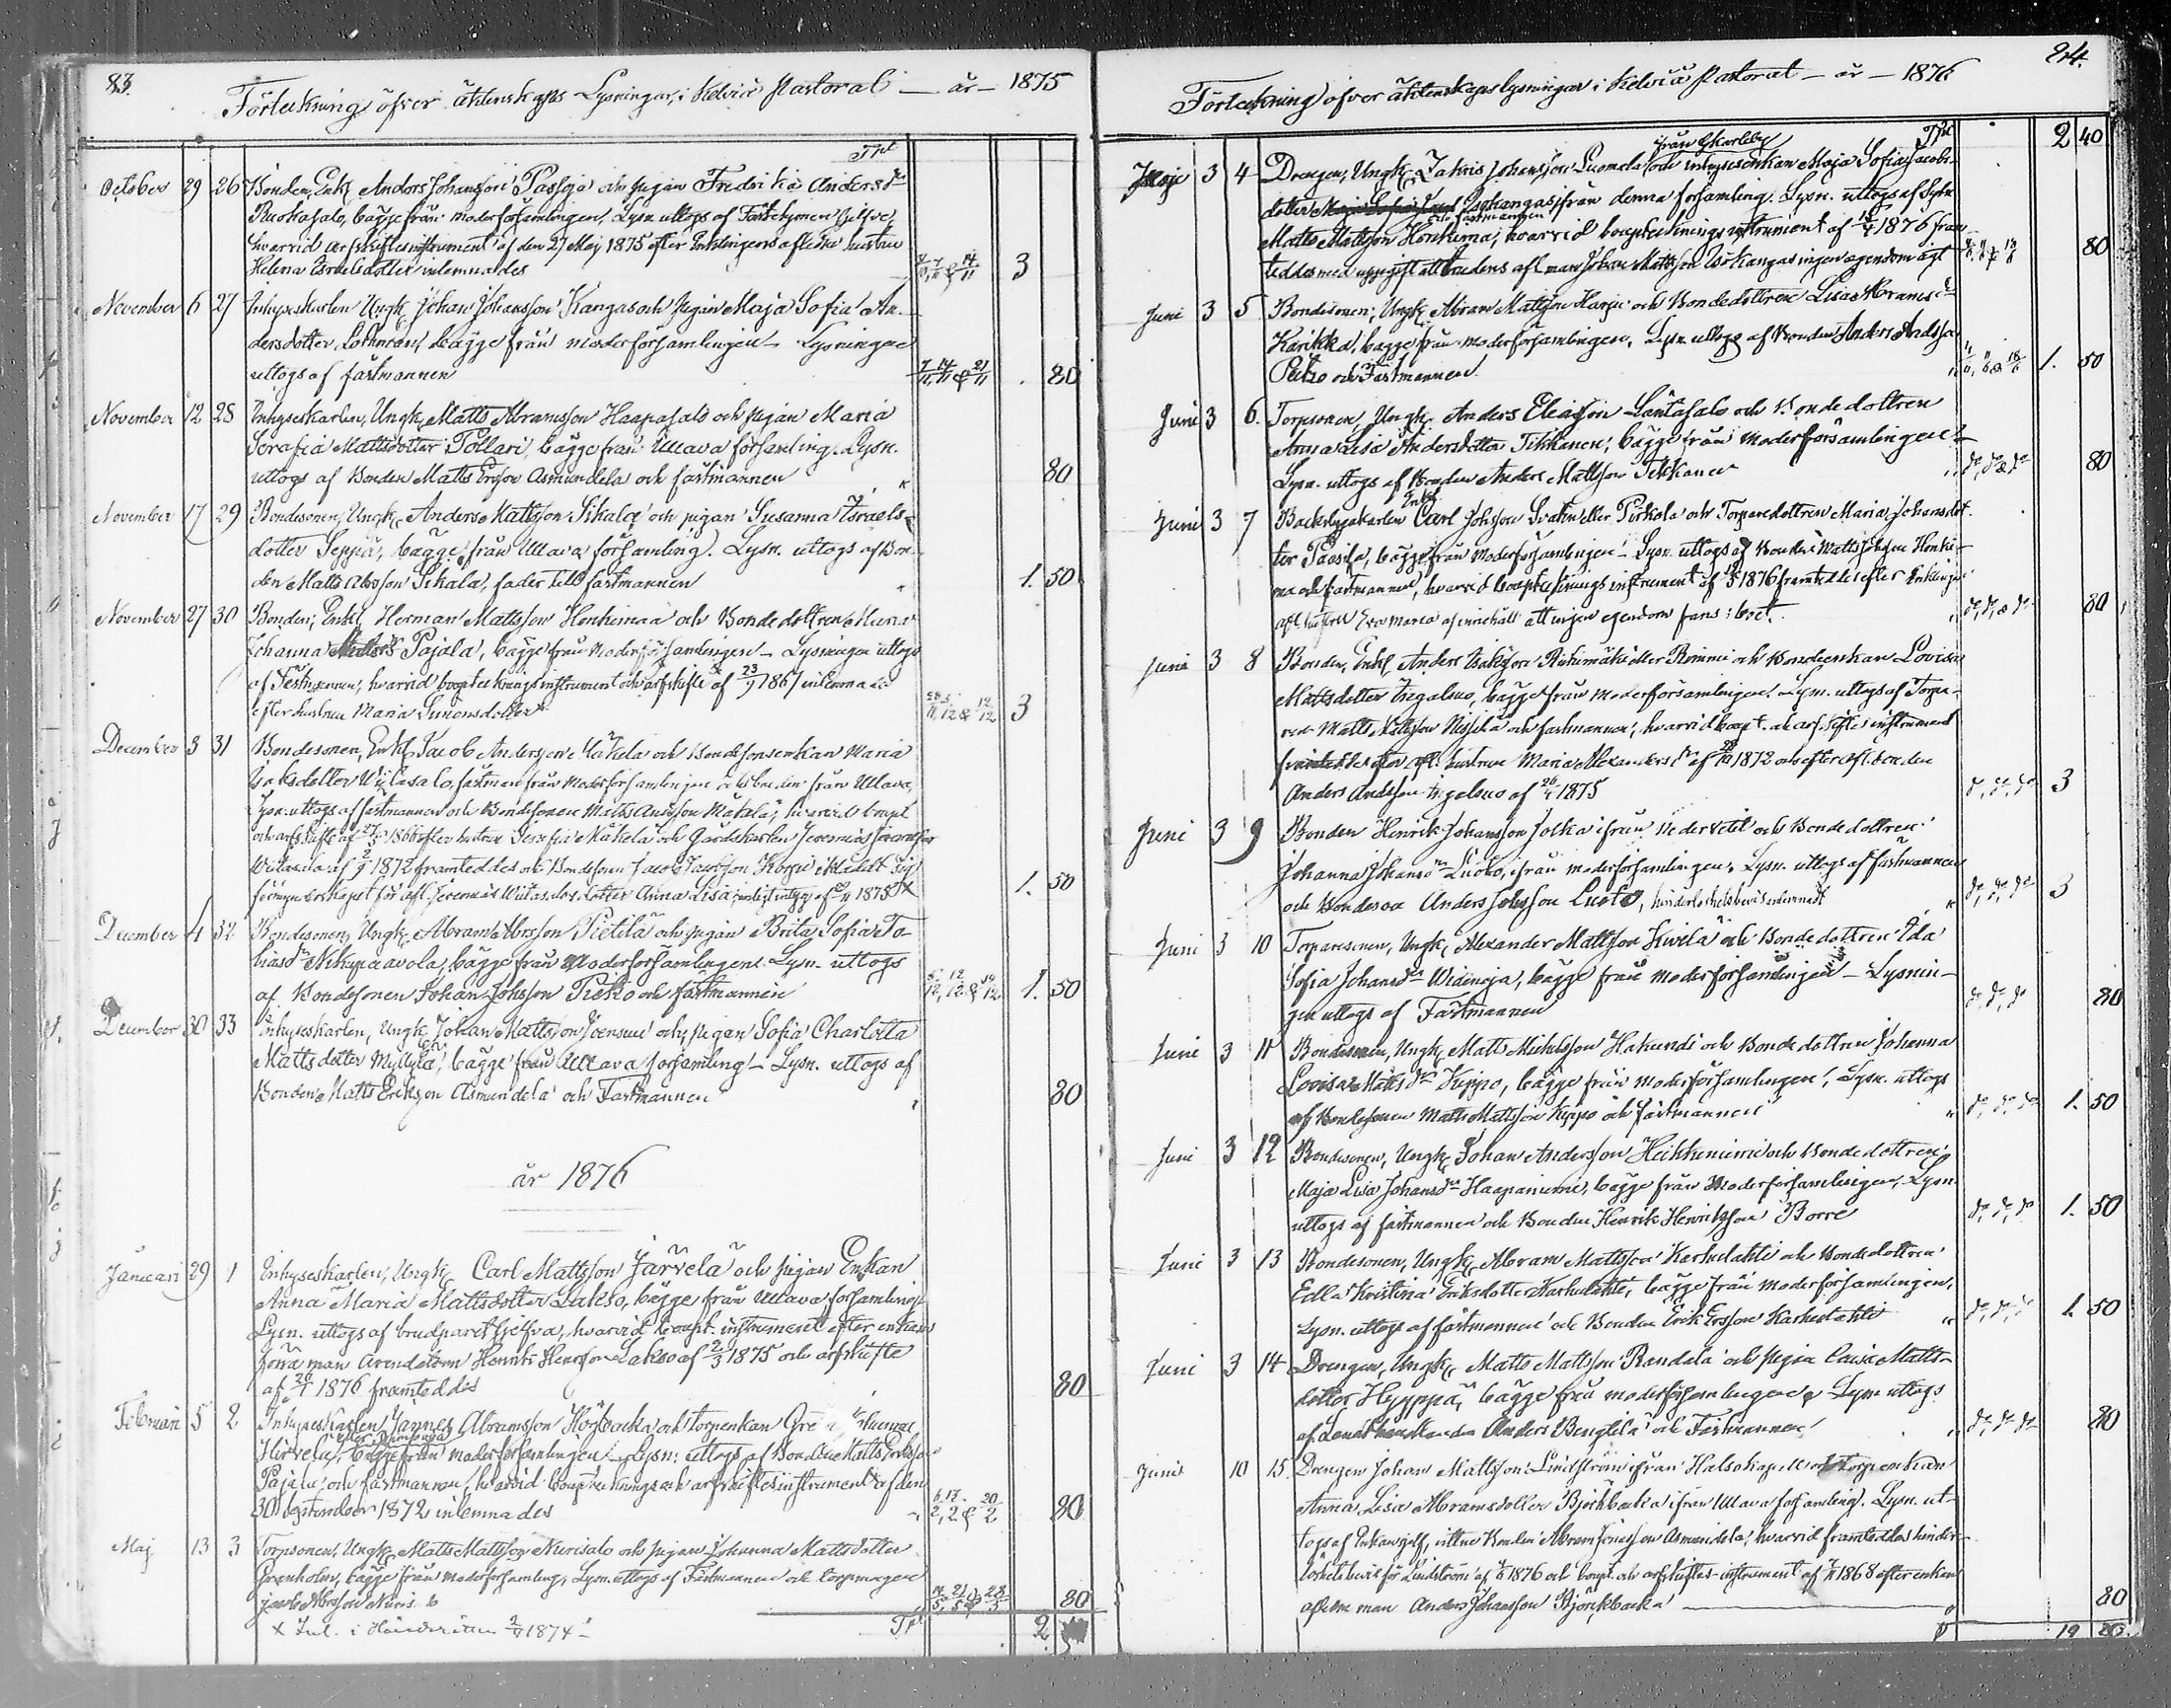 83.
Förteckning öfver äktenskaps Lysningar, i Kelviå Pastorat — år — 1875
Tpt
October 29 26 Bonden, Enkl. Anders Johansson Passoja och pigan Fredrika Anders dr
Ruokasalo, bägge från moderförsamlingen, Lysn. uttogs af Fästekonen sjelfve,
hvarvid arfskiftesinstrument af den 27 Maj 1875 efter Enklingens aflidne hustru
Helena Israelsdotter inlemnades 3
November 6 27 Inhyseskarlen Ungk. Johan Johansson Kangas och pigan Maja Sofia An-
dersdotter Lohman, bägge från moderförsamlingen — Lysningen
uttogs af fästmannen 7/11, 14/11 & 21/11 . 80
November 12 28 Inhyseskarlen, Ungk. Matts Abramsson Haapasalo och pigan Maria
Serafia Mattsdotter Pollari, bägge från Ullava församling. Lysn.
uttogs af Bonden Matts Ersson Asmundela och fästmannen " 80
November 17 29 Bondesonen, Ungk. Anders Mattsson Sikala och pigan Susanna Israels-
dotter Seppä, bägge från Ullava församling. Lysn. uttogs af Bon-
den Matts Abrsson Sikala, fader till fästmannen " 1. 50
November 27 30 Bonden, Enkl. Herman Mattsson Honkimaa och Bondedottren
Johanna Pajala, bägge från Moderförsamlingen — Lysningen uttogs
af Fästmannen, hvarvid bouptecknings instrument och arfskifte af 23/9 1867 inlemnades
efter hustrun Maria Simonsdotter 28/11, 5/12 & 12/12 3
December 3 31 Bondesonen, Enkl. Jacob Andersson Mäkelä och Bondesonsenkan Maria
Isaksdotter Wiitasalo, fästman från Moderförsamlingen och bruden från Ullava,
Lysn. uttogs af fästmannen och Bondesonen Matts Andsson Mäkelä, hvarvid boupt.
och arfskifte af 1866 efter hustrun Serafia Mäkelä och Gårdskarlen Jeremias
Wiitasalo af 1872 framteddes och Bondesonen Jacob Jacobsson Korpi iklädt sig
förmynderskapet för afl. Jeremias Wiitasalos dotter Anna Lisa, 1875 x 1. 50
December 4 32 Bondesonen, Ungk. Abram Abrsson Pietilä och pigan Brita Sofia To-
biasdr Nikupaavola, bägge från Moderförsamlingen. Lysn. uttogs
af Bondesonen Johan Johsson Pietko och fästmannen 5/12, 12/12 & 19/12 1. 50
December 30 33 Inhyseskarlen, Ungk. Johan Mattsson Joensuu och pigan Sofia Charlotta
Mattsdotter Myllylä, bägge från Ullava församling — Lysn. uttogs af
Bonden Matts Eriksson Asmundela och Fästmannen " 80
år 1876
Januari 29 1 Inhyseskarlen, Ungk. Carl Mattsson Järvelä och pigan Enkan
Anna Maria Mattsdotter Lakso, bägge från Ullava församling.
Lysn. uttogs af brudparet sjelfva, hvarvid boupt. instrument efter enkans
förra man Arendatorn Henrik Henrsson Lakso af 2/3 1875 och arfskifte
af 26/1 1876 framteddes 80
Februari 5 2 Inhyseskarlen Jannes Abramsson Högbacka och torpenkan
Hirvelä, bägge från moderförsamlingen — Lysn. uttogs af Bonden Matts Eriksson
Pajala och fästmannen, hvarvid bouptecknings och arfskiftesinstrument af den
30 September 1872 inlemnades 6/2, 13/2 & 20/2 80
Maj 13 3 Torpsonen, Ungk. Matts Mattsson Niirisalo och pigan Johanna Mattsdotter
Granholm, bägge från moderförsamling. Lysn. uttogs af Fästmannen och torpmågen
Jacob Abrsson Niiris.o 14/5, 21/5 & 28/5 80
x Inl. i Häradsrätten 1874 —
Tpt 2
84.
Förteckning öfver äktenskapslysningar i Kelviå Pastorat — år — 1876
Tpt 2 40
från Gkarleby
Maji 3 4 Drengen, Ungk. Zakris Johansson Luomala och inhysesenkan Maja Sofia Jacobs-
dotter Isokangas från denna församling. Lysn. uttogs af
och fästmannen
Matts Mattsson Honkima, hvarvid bouptecknings instrument af 1876 fram-
teddes med uppgift att brudens afl. man Johan Mattsson Isokangas ingen egendom ägt 80
Juni 3 5 Bondesonen, Ungk. Abram Mattsson Harju och Bondedottren Lisa Abrams dr
Karikka, bägge från moderförsamlingen. Lysn. uttogs af Bonden Anders Andsson
Peitso och Fästmannen. 1. 50
Juni 3 6. Torpsonen, Ungk. Anders Eliasson Säntäsalo och Bondedottren
Anna Lisa Andersdotter Tikkanen, bägge från moderförsamlingen —
Lysn. uttogs af Bonden Anders Mattsson Tikkanen do, do & do 80
Enkl.
Juni 3 7 Backstugukarlen Carl Johsson Svahn eller Pirkola och Torparedottren Maria Johansdot-
ter Passila, bägge från Moderförsamlingen — Lysn. uttogs af Bonden Matts Johsson Honki-
ma och fästmannen, hvarvid bouptecknings instrument af 1876 framteddes efter Enklingens
afl. hustru Eva Maria af innehåll att ingen egendom fans i boet. do, do & do 80
Juni 3 8 Bonden, Enkl. Anders Isaksson Riihimäki eller Rimmi och Bondeenkan Lovisa
Mattsdotter Ingalsuo, bägge från Moderförsamlingen. Lysn. uttogs af Torpa-
ren Matts Mattsson Nissilä och fästmannen, hvarvid boupt. och arfskiftes instrument
framteddes efter afl. hustrun Maria Alexandersdr af 1872 och efter afl. bonden
Anders Andsson Ingalsuo af 26/1 1875 do, do, do 3
Juni 3 9 Bonden Henrik Johansson Jolka ifrån Nedervetil och Bondedottren
Johanna Johansdr Luoto, ifrån moderförsamlingen. Lysn. uttogs af fästmannen
och Bondeson Anders Johsson Luoto, hinderlöshetsbevis inlemnadt do, do, do 3
Juni 3 10 Torparesonen, Ungk. Alexander Mattsson Kivelä och Bondedottren Ida
Sofia Johansdr Widenoja, bägge från moderförsamlingen — Lysnin-
gen uttogs af Fästmannen do, do, do 80
Juni 3 11 Bondesonen, Ungk. Matts Mickelsson Hakunti och Bondedottren Johanna
Lovisa Matts dr Kippo, bägge från moderförsamlingen, Lysn. uttogs
af Bondesonen Matts Mattsson Kippo och fästmannen do, do, do 1. 50
Juni 3 12 Bondesonen, Ungk. Johan Andersson Heikkiniemi och Bondedottren
Maja Lisa Johansdr Haapaniemi, bägge från Moderförsamlingen, Lysn.
uttogs af fästmannen och Bonden Henrik Henriksson Borre do, do, do 1. 50
Juni 3 13 Bondesonen, Ungk. Abram Mattsson Karhulahti och Bondedottren
Edla Kristina Eriksdotter Karhulahti, bägge från moderförsamlingen,
Lysn. uttogs af fästmannen och Bonden Erik Ersson Karhulahti do, do, do 1. 50
Juni 3 14 Drengen, Ungk. Matts Mattsson Randala och pigan Caisa Matts-
dotter Hyyppä, bägge från moderförsamlingen, Lysn. uttogs
af Lanthandlanden Anders Bengtelä och Fästmannen do, do, do 80
Juni 10 15. Drengen Johan Mattsson Lindström ifrån Halsokapell och torpenkan
Anna Lisa Abramsdotter Björkbacka ifrån Ullava församling. Lysn. ut-
togs af Enkan sjelf, vittne Bonden Abram Jonasson Asmundela, hvarvid framteddes hinder-
löshetsbevis för Lindström af 1876 och boupt. och arfskiftes-instrument af 1868 efter enkans
aflidne man Anders Johansson Björkbacka 80
19 80.